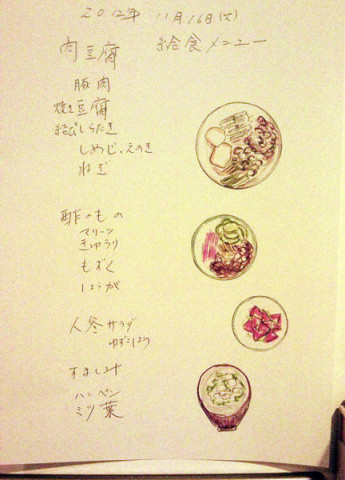 2012年 11月16日(火)
肉豆腐 給食メニュー
豚肉
焼き豆腐
結びしらたき
しめじ、えのき
ねぎ
酢のもの
マリーン
きゅうり
もずく
しょうが
人参サラダ
ゆずこしょう
すまし汁
ハンペン
ミツ葉